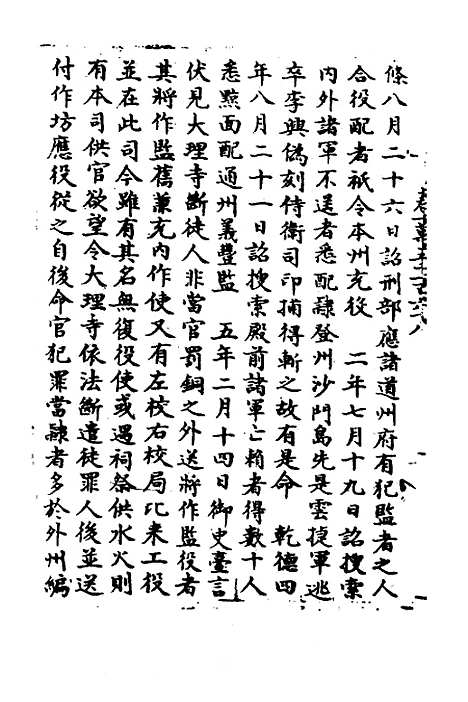 條八月二十六日詔刑部應諸道州府有犯監者之人
合役配者祇令本州充役　二年七月十九日詔搜索
內外諸軍不逞者悉配隸登州沙門島先是雲捷軍逃
卒李興偽刻侍衛司印捕得斬之故有是命　乾德四
年八月二十一日詔搜索殿前諸軍亡賴者得數十人
悉黥面配通州義豐監　五年二月十四日御史臺言
伏見大理寺斷徒人非當官罰銅之外送將作監役者
其將作監舊兼充內作使又有左校右校局比來工役
並在此司今雖有其名無復役使或遇祠祭供水火則
有本司供官欲望令大理寺依法斷遣徒罪人後並送
付作坊應役從之自後命官犯罪當隸者多於外州編